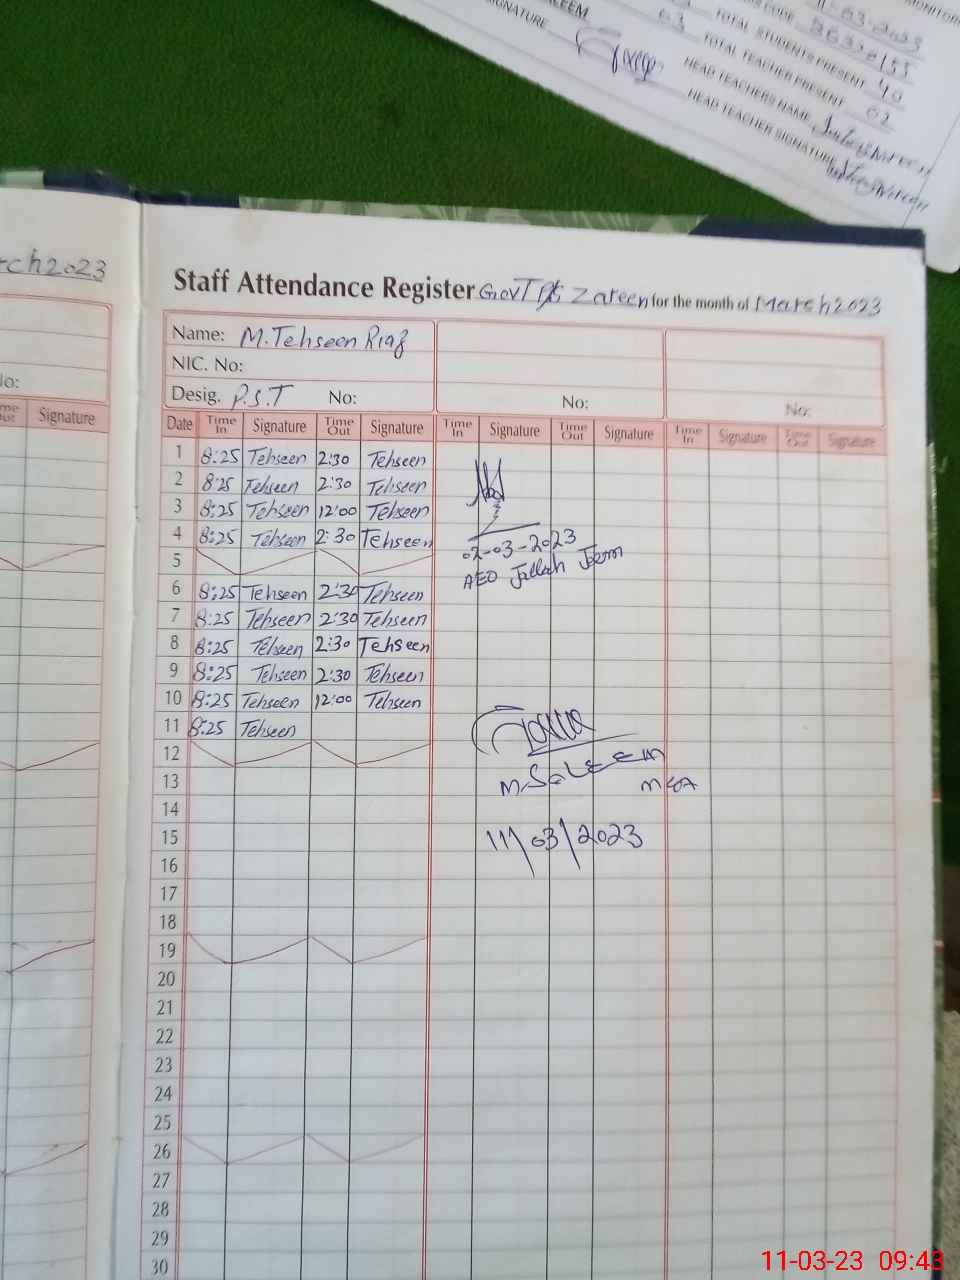 MONITOR
11-03-2023
CODE 36330155
TOTAL STUDENTS PRESENT 40
63 TOTAL TEACHER PRESENT 02
HEAD TEACHERS NAME
HEAD TEACHER SIGNATURE
SIGNATURE
rch2023
Staff Attendance Register GovT PS Zareen for the month of March2023
Name: M.Tehseen Riaz
NIC. No:
Desig. P.S.T No:
No:
No:
No:
Date Time In Signature Time Out Signature Time In Signature Time Out Signature Time In Signature Time Out Signature
me Out Signature
1 8:25 Tehseen 2:30 Tehseen
2 8:25 Tehseen 2:30 Tehseen
3 8:25 Tehseen 12:00 Tehseen
4 8:25 Tehseen 2:30 Tehseen
02-03-2023
AEO Jallah Jeem
5
6 8:25 Tehseen 2:30 Tehseen
7 8:25 Tehseen 2:30 Tehseen
8 8:25 Tehseen 2:30 Tehseen
9 8:25 Tehseen 2:30 Tehseen
10 8:25 Tehseen 12:00 Tehseen
11 8:25 Tehseen
12
M.SaLEEM
MEA
13
14
15
11/03/2023
16
17
18
19
20
21
22
23
24
25
26
27
28
29
30
11-03-23 09:43